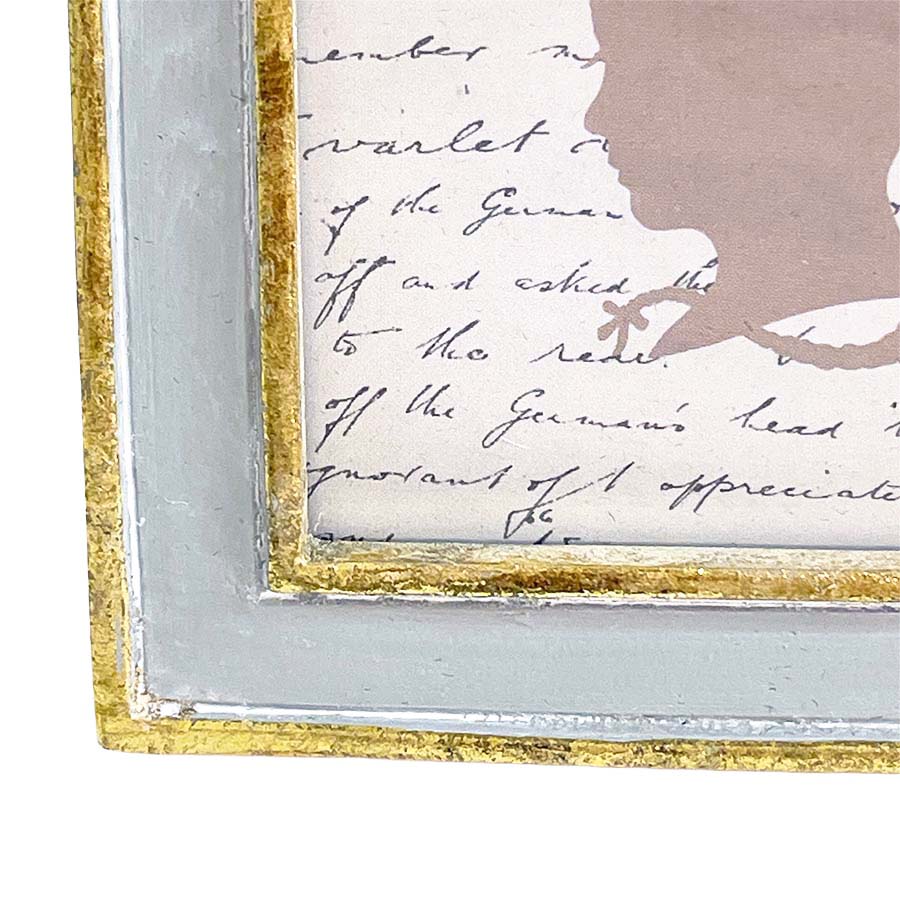 member
varlet
of the German
off and asked the
to the rear.
off the German's head
ignorant of I appreciate